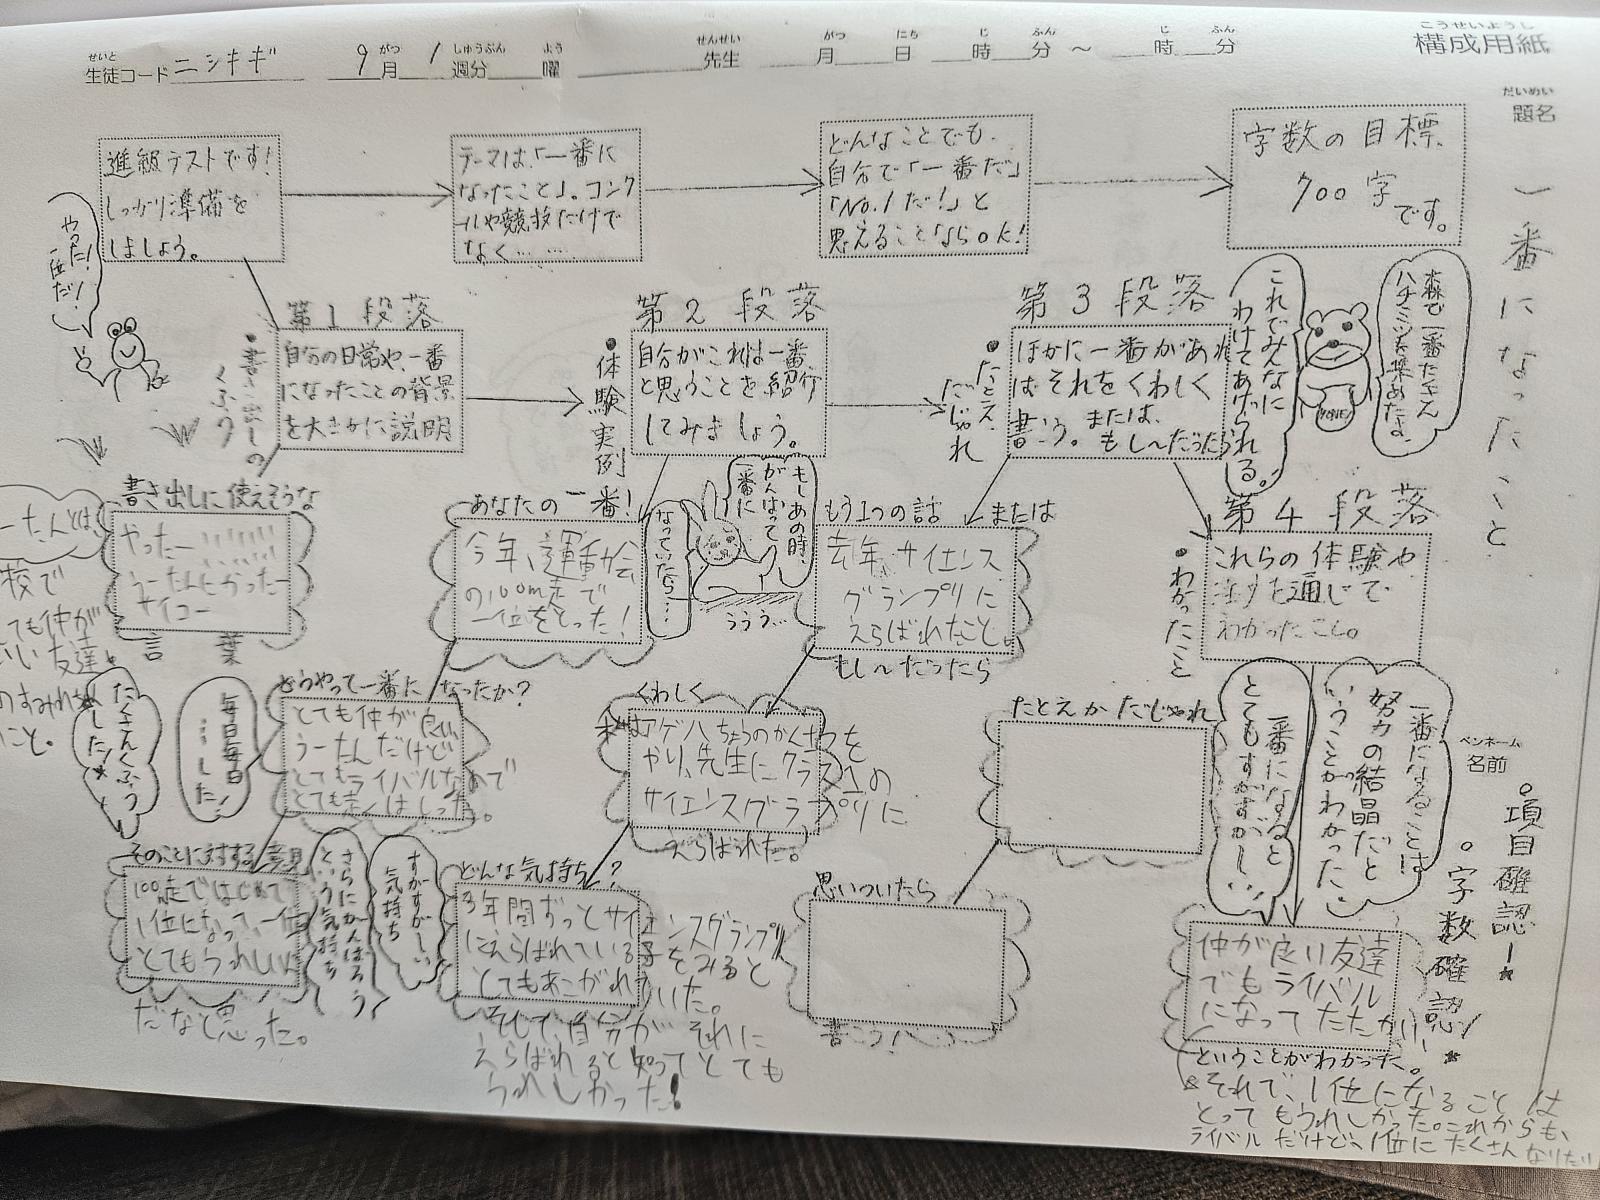 こうせいようし
構成用紙
せいと
生徒コード ニシキギ
9 がつ 月 1 しゅうぶん 週分 よう 曜
せんせい 先生
がつ 月 にち 日 じ 時 ふん 分 ～ じ 時 ふん 分
だいめい
題名
一番になったこと
進級テストです！
しっかり準備を
しましょう。
テーマは、「一番に
なったこと」。コンク
ールや競技だけで
なく……
どんなことでも、
自分で「一番だ」
「No.1だ！」と
思えることならOK！
字数の目標
700字です。
やった！
一位だ！
第1段落
自分の日常や、一番
になったことの背景
を大まかに説明
・書き出しの
くふう
第2段落
自分がこれは一番
と思うことを紹介
してみましょう。
・体験実例
第3段落
ほかに一番があれ
ばそれをくわしく
書こう。または、
もし～だったら
・たとえ
だじゃれ
これでみんなに
わけてあげられる。
森で一番たくさん
ハチミツを集めたよ。
HONEY
第4段落
これらの体験や
を通じて
わかったこと。
・わかったこと
書き出しに使えそうな
言葉
やったー
うーたんにかったー
サイコー
ーたんとは、
校で
ても仲が
いい友達。
のすみれ
こと。
あなたの一番！
今年、運動会
の100m走で
一位をとった！
もしあの時、
がんばって
一番に
なっていたら…
ううう…
もう1つの話 または
去年、サイエンス
グランプリに
えらばれたこと。
もし～だったら
どうやって一番になったか？
とても仲が良い
うーたんだけど
とてもライバルなので
とても速くはしった。
毎日毎日
……した！
たくさんくふう
した！
くわしく
私はアゲハちょうのかんさつを
やり、先生にクラス1の
サイエンスグランプリに
えらばれた。
たとえかだじゃれ
一番になると
とてもすがすがしい！
一番になることは
努力の結晶だと
いうことがわかった！
ペンネーム
名前
。項目確認！
。字数確認！
そのことに対する意見
100走ではじめて
1位になって、一位
とてもうれしいん
だなと思った。
さらにがんばろう
という気持ち
すがすがしい
気持ち
どんな気持ち？
3年間ずっとサイエンスグランプリ
にえらばれている子をみると
とてもあこがれていた。
そして自分がそれに
えらばれると知ってとても
うれしかった！
思いついたら
書こう！
仲が良い友達
でもライバル
になってたたかい
ということがわかった。
それで、1位になることは
とってもうれしかった。これからも、
ライバルだけど、1位にたくさんなりたい